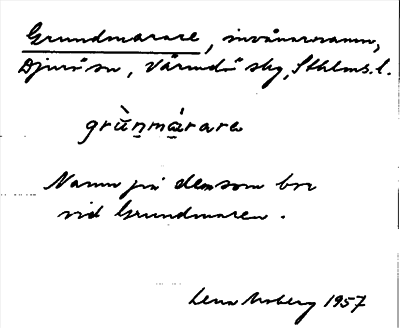 Grundmarare, invånarnamn,
Djurö sn, Värmdö skg, Sthlms. l.
grùnmárara
Namn på den som bor
vid Grundmaren.
Lena Moberg 1957